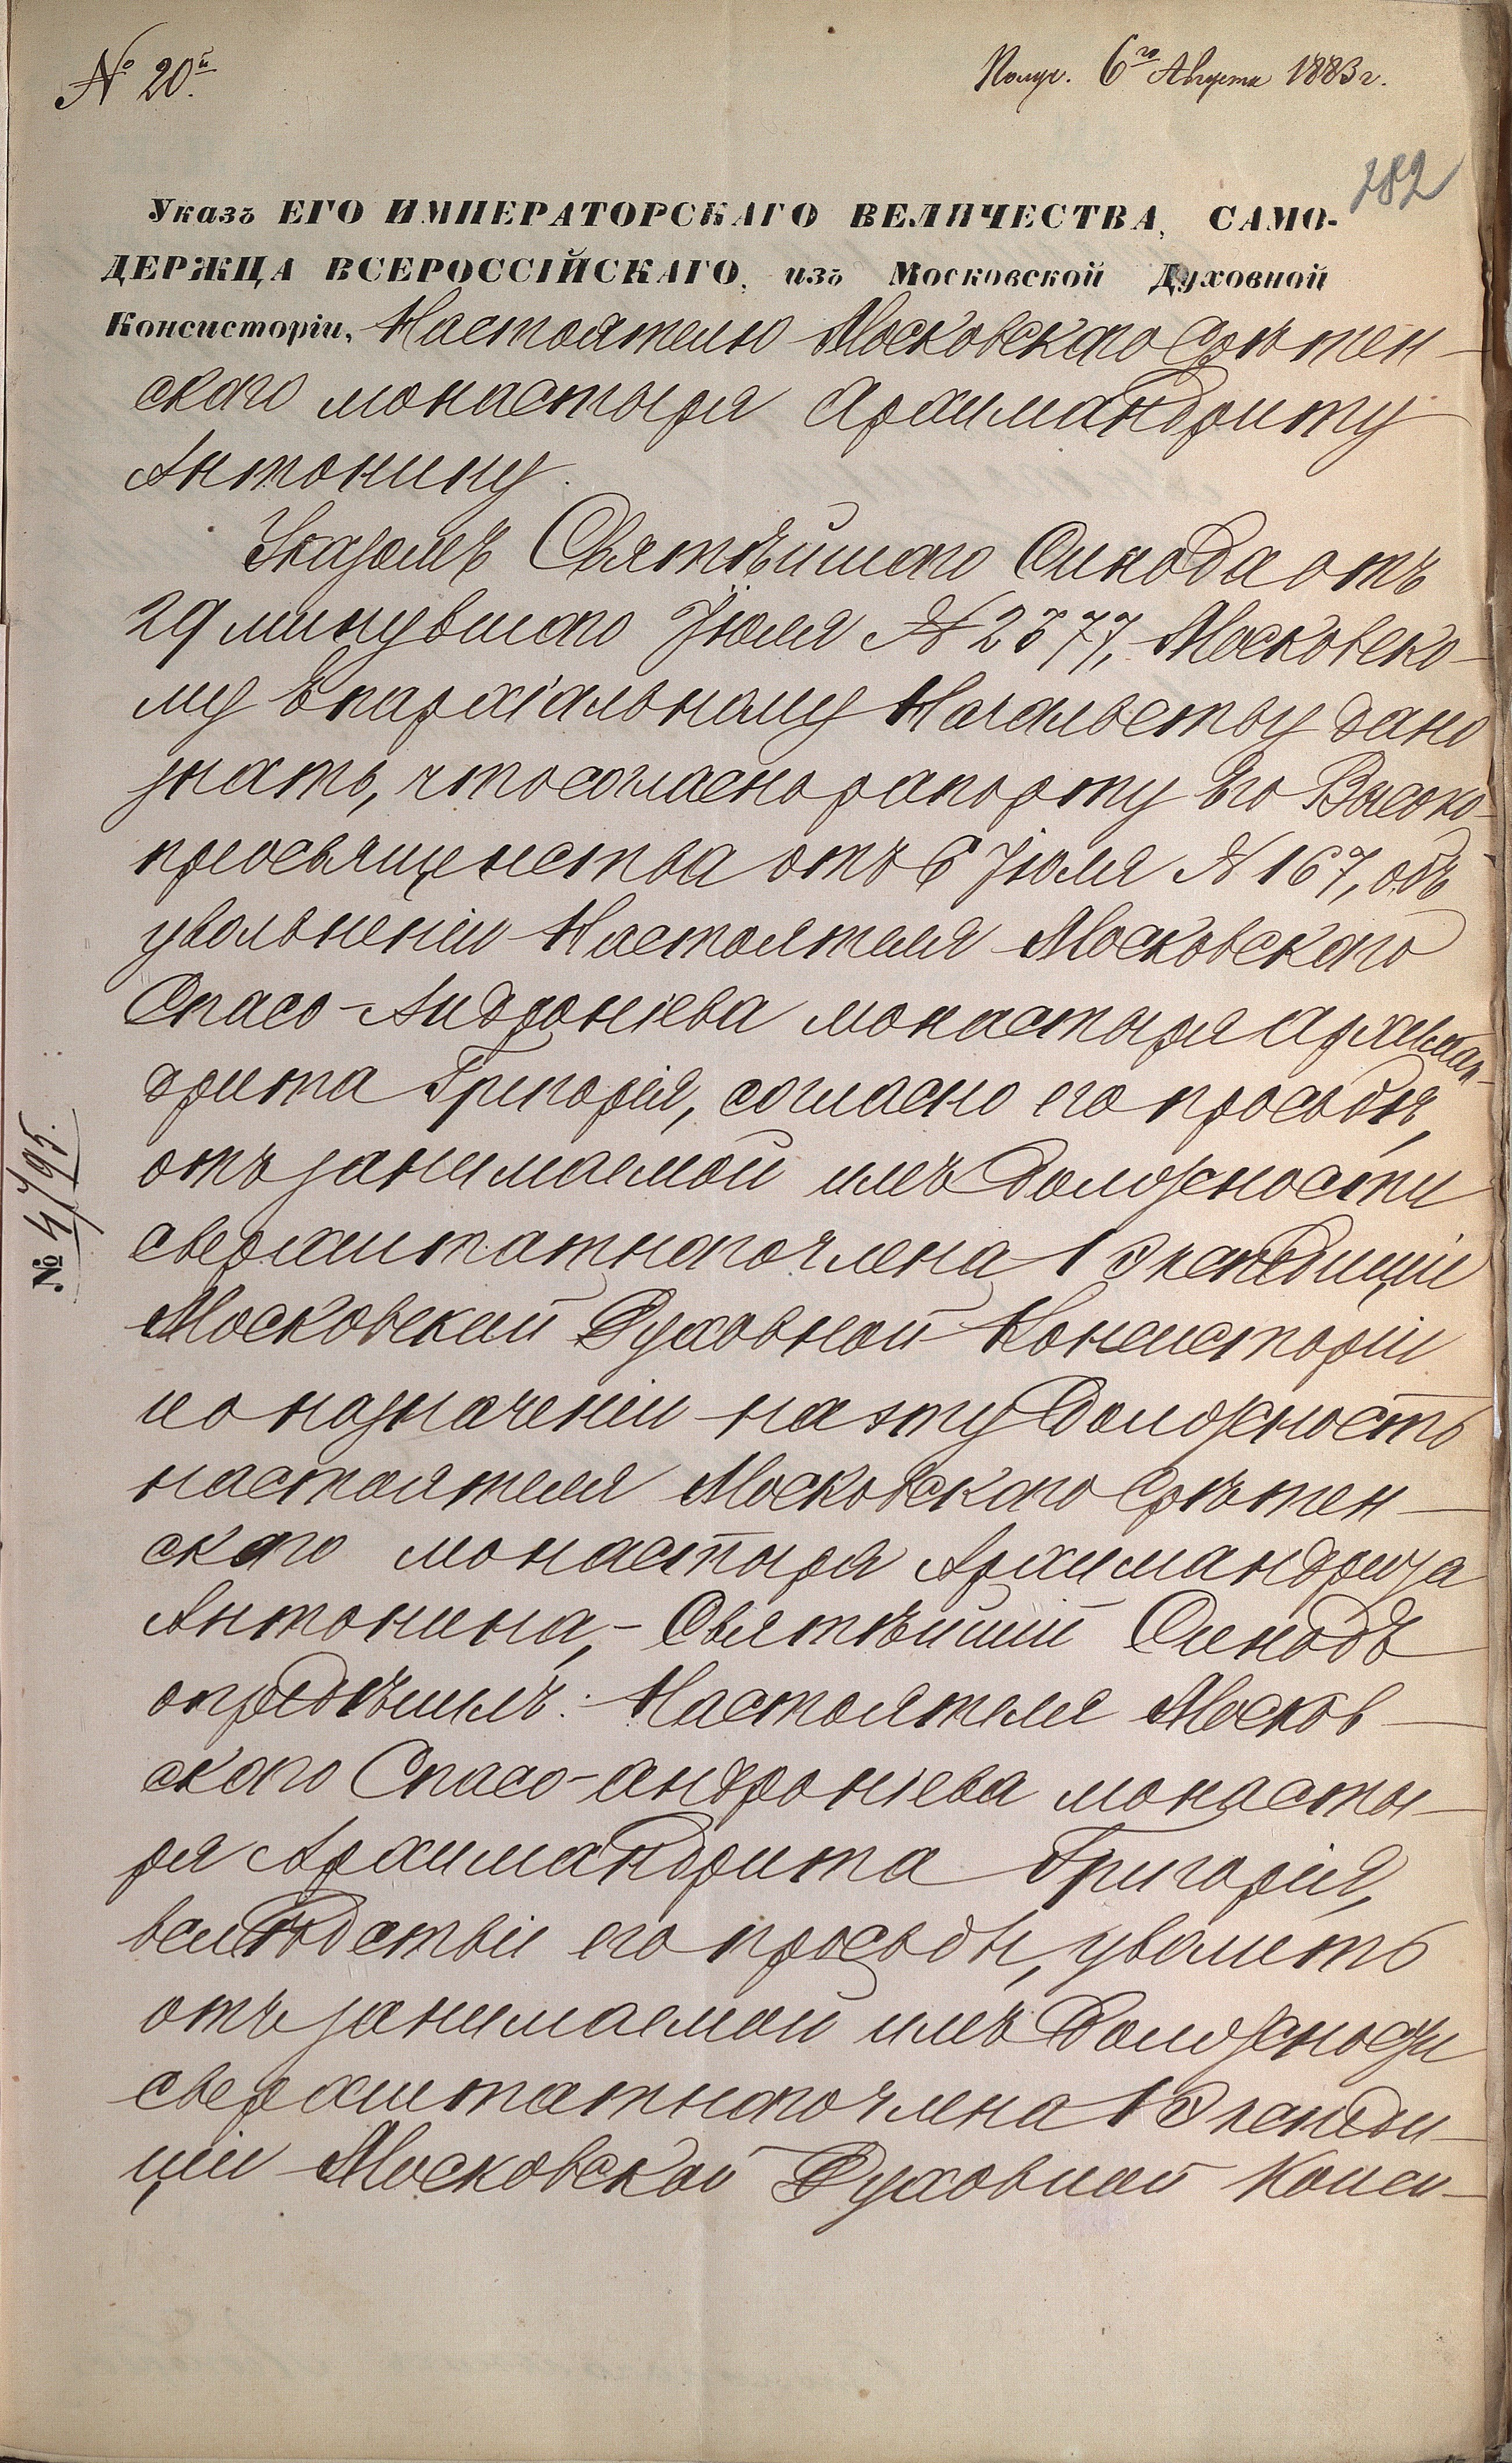 № 20й.
Получ. 6го Августа 1883 г.
282
Указъ ЕГО ИМПЕРАТОРСКАГО ВЕЛИЧЕСТВА, САМО-
ДЕРЖЦА ВСЕРОССІЙСКАГО, изъ Московской Духовной
Консисторіи, Настоятелю Московскаго Срѣтен-
скаго монастыря Архимандриту
Антонину.
Указомъ Святѣйшаго Синода отъ
29 минувшаго Іюля № 2377, Московско-
му Епархіальному Начальству дано
знать, что согласно рапорту Его Высоко-
преосвященства отъ 6 Іюля № 167, объ
увольненіи Настоятеля Московскаго
Спасо-Андроніева монастыря Архиман-
дрита Григорія, согласно его просьбѣ,
отъ занимаемой имъ должности
сверхштатнаго члена 1 Экспедиціи
Московской Духовной Консисторіи
и о назначеніи на эту должность
настоятеля Московскаго Срѣтен-
скаго монастыря Архимандрита
Антонина, - Святѣйшій Синодъ
опредѣлилъ: Настоятеля Москов-
скаго Спасо-Андроніева монасты-
ря Архимандрита Григорія,
вслѣдствіи его просьбы, уволить
отъ занимаемой имъ должности
сверхштатнаго члена 1 Экспеди-
ціи Московской Духовной Конси-
№ 4795.